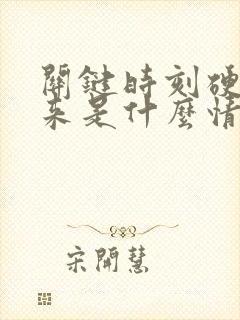 關鍵時刻硬
來是什麼情
宋開慧